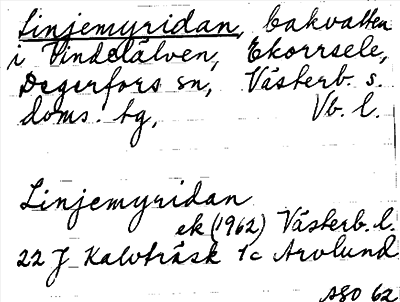 Linjemyridan, bakvatten
i Vindelälven, Ekorrsele,
Degerfors sn, Västerb. s.
doms. tg, Vb. l.
Linjemyridan
ek (1962) Västerb. l.
22 J Kalvträsk 1c Arvlund
ASO 62